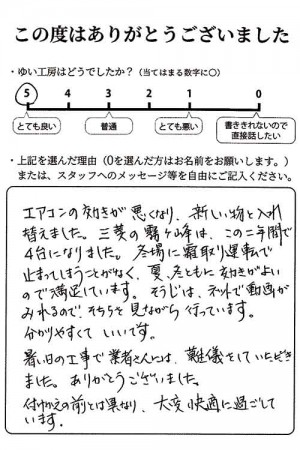 この度はありがとうございました
・ゆい工房はどうでしたか？（当てはまる数字に○）
5 4 3 2 1 0
とても良い 普通 とても悪い 書ききれないので直接話したい
・上記を選んだ理由（0を選んだ方はお名前をお願いします。）
または、スタッフへのメッセージ等を自由にご記入ください。
エアコンの効きが悪くなり、新しい物と入れ
替えました。三菱の霧ヶ峰は、この二年間で
4台になりました。冬場に霜取り運転で
止まってしまうことがなく、夏、冬ともに効きがよい
ので満足しています。そうじは、ネットで動画が
みれるので、そちらを見ながら行っています。
分かりやすくていいです。
暑い日の工事で業者さんには、難儀をしていただき
ました。ありがとうございました。
付けかえの前とは異なり、大変快適に過ごして
います。